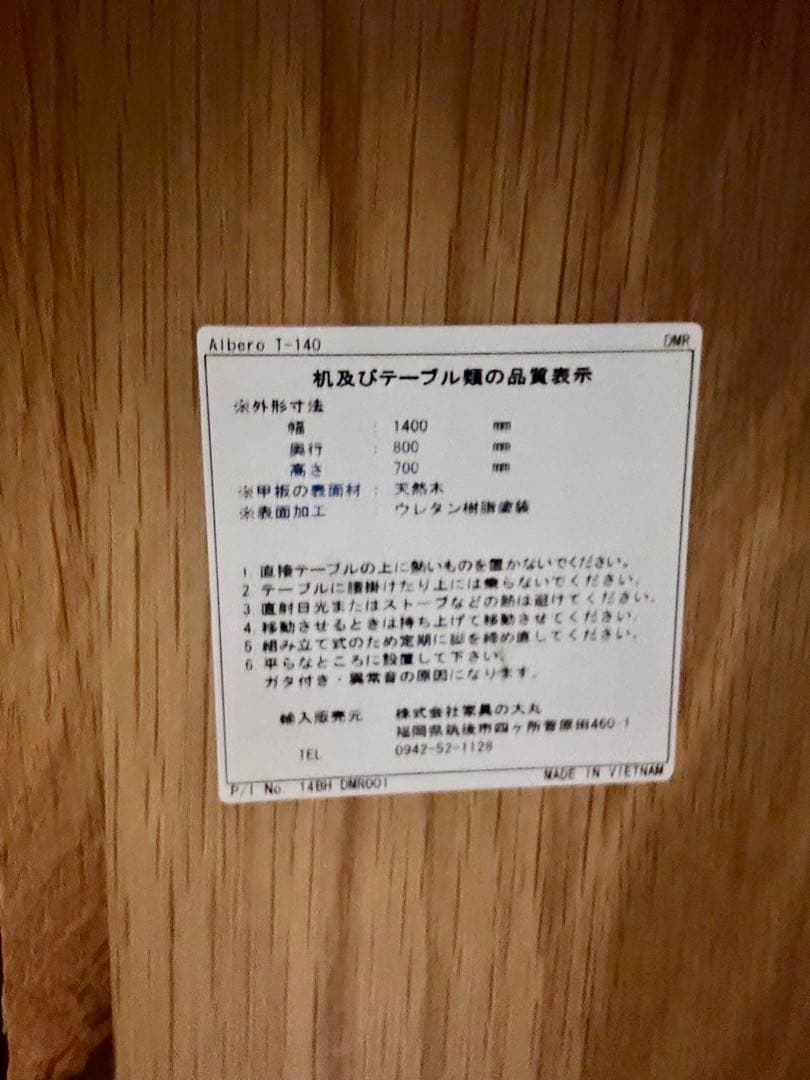 Albero T-140 DMR
机及びテーブル類の品質表示
※外形寸法
幅 : 1400 mm
奥行 : 800 mm
高さ 700 mm
※甲板の表面材 : 天然木
※表面加工 : ウレタン樹脂塗装
1 直接テーブルの上に熱いものを置かないでください。
2 テーブルに腰掛けたり上には乗らないでください。
3 直射日光またはストーブなどの熱は避けてください。
4 移動させるときは持ち上げて移動させてください。
5 組み立て式のため定期に脚を締め直してください。
6 平らなところに設置して下さい。
ガタ付き・異常音の原因になります。
輸入販売元 株式会社家具の大丸
福岡県筑後市四ヶ所菅原田460-1
TEL 0942-52-1128
P/I No. 14BH DMR001 MADE IN VIETNAM